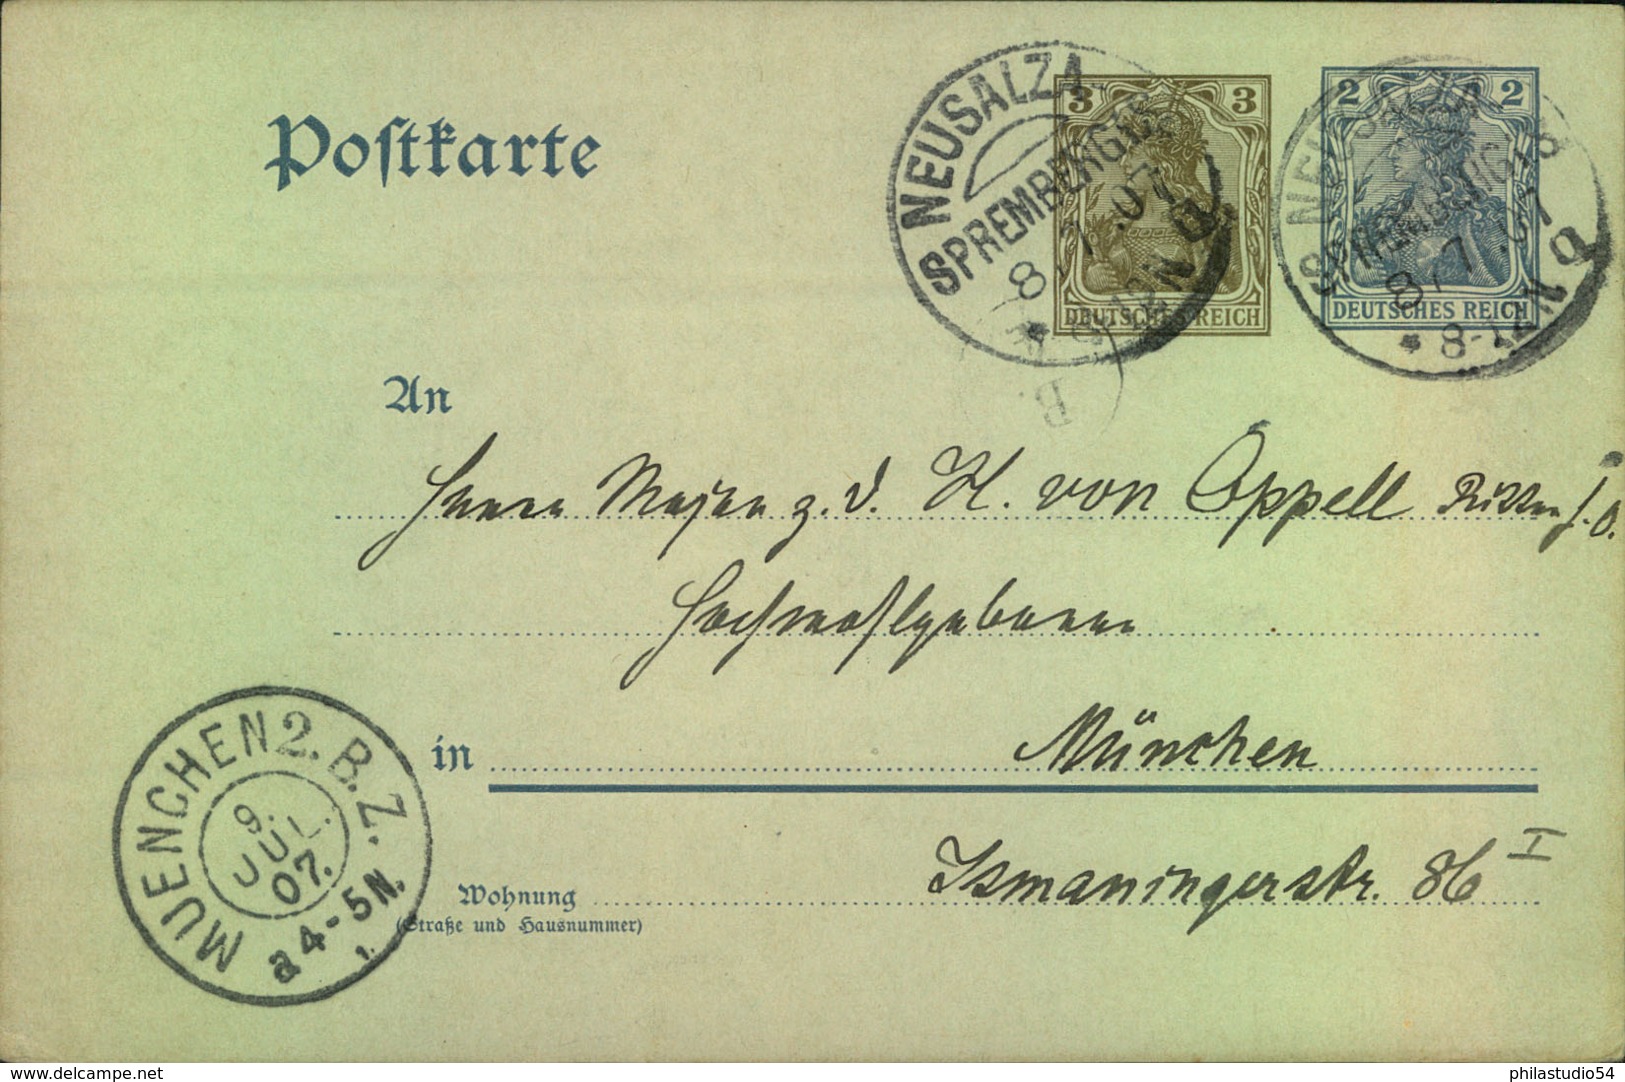 Postkarte
3 3
DEUTSCHES REICH
2 2
DEUTSCHES REICH
NEUSALZA
SPREMBERG
8/7.07
8-12N
8/7.07
* 8-12N
B.
An
Herrn Major z. d. H. von Oppell Ritter p.
Hochwohlgeboren
in München
Ismaningerstr. 86 I
Wohnung
(Straße und Hausnummer)
MUENCHEN 2. B.Z.
9.
JUL.
07.
a 4-5N.
1.
delcampe.net
philastudio54